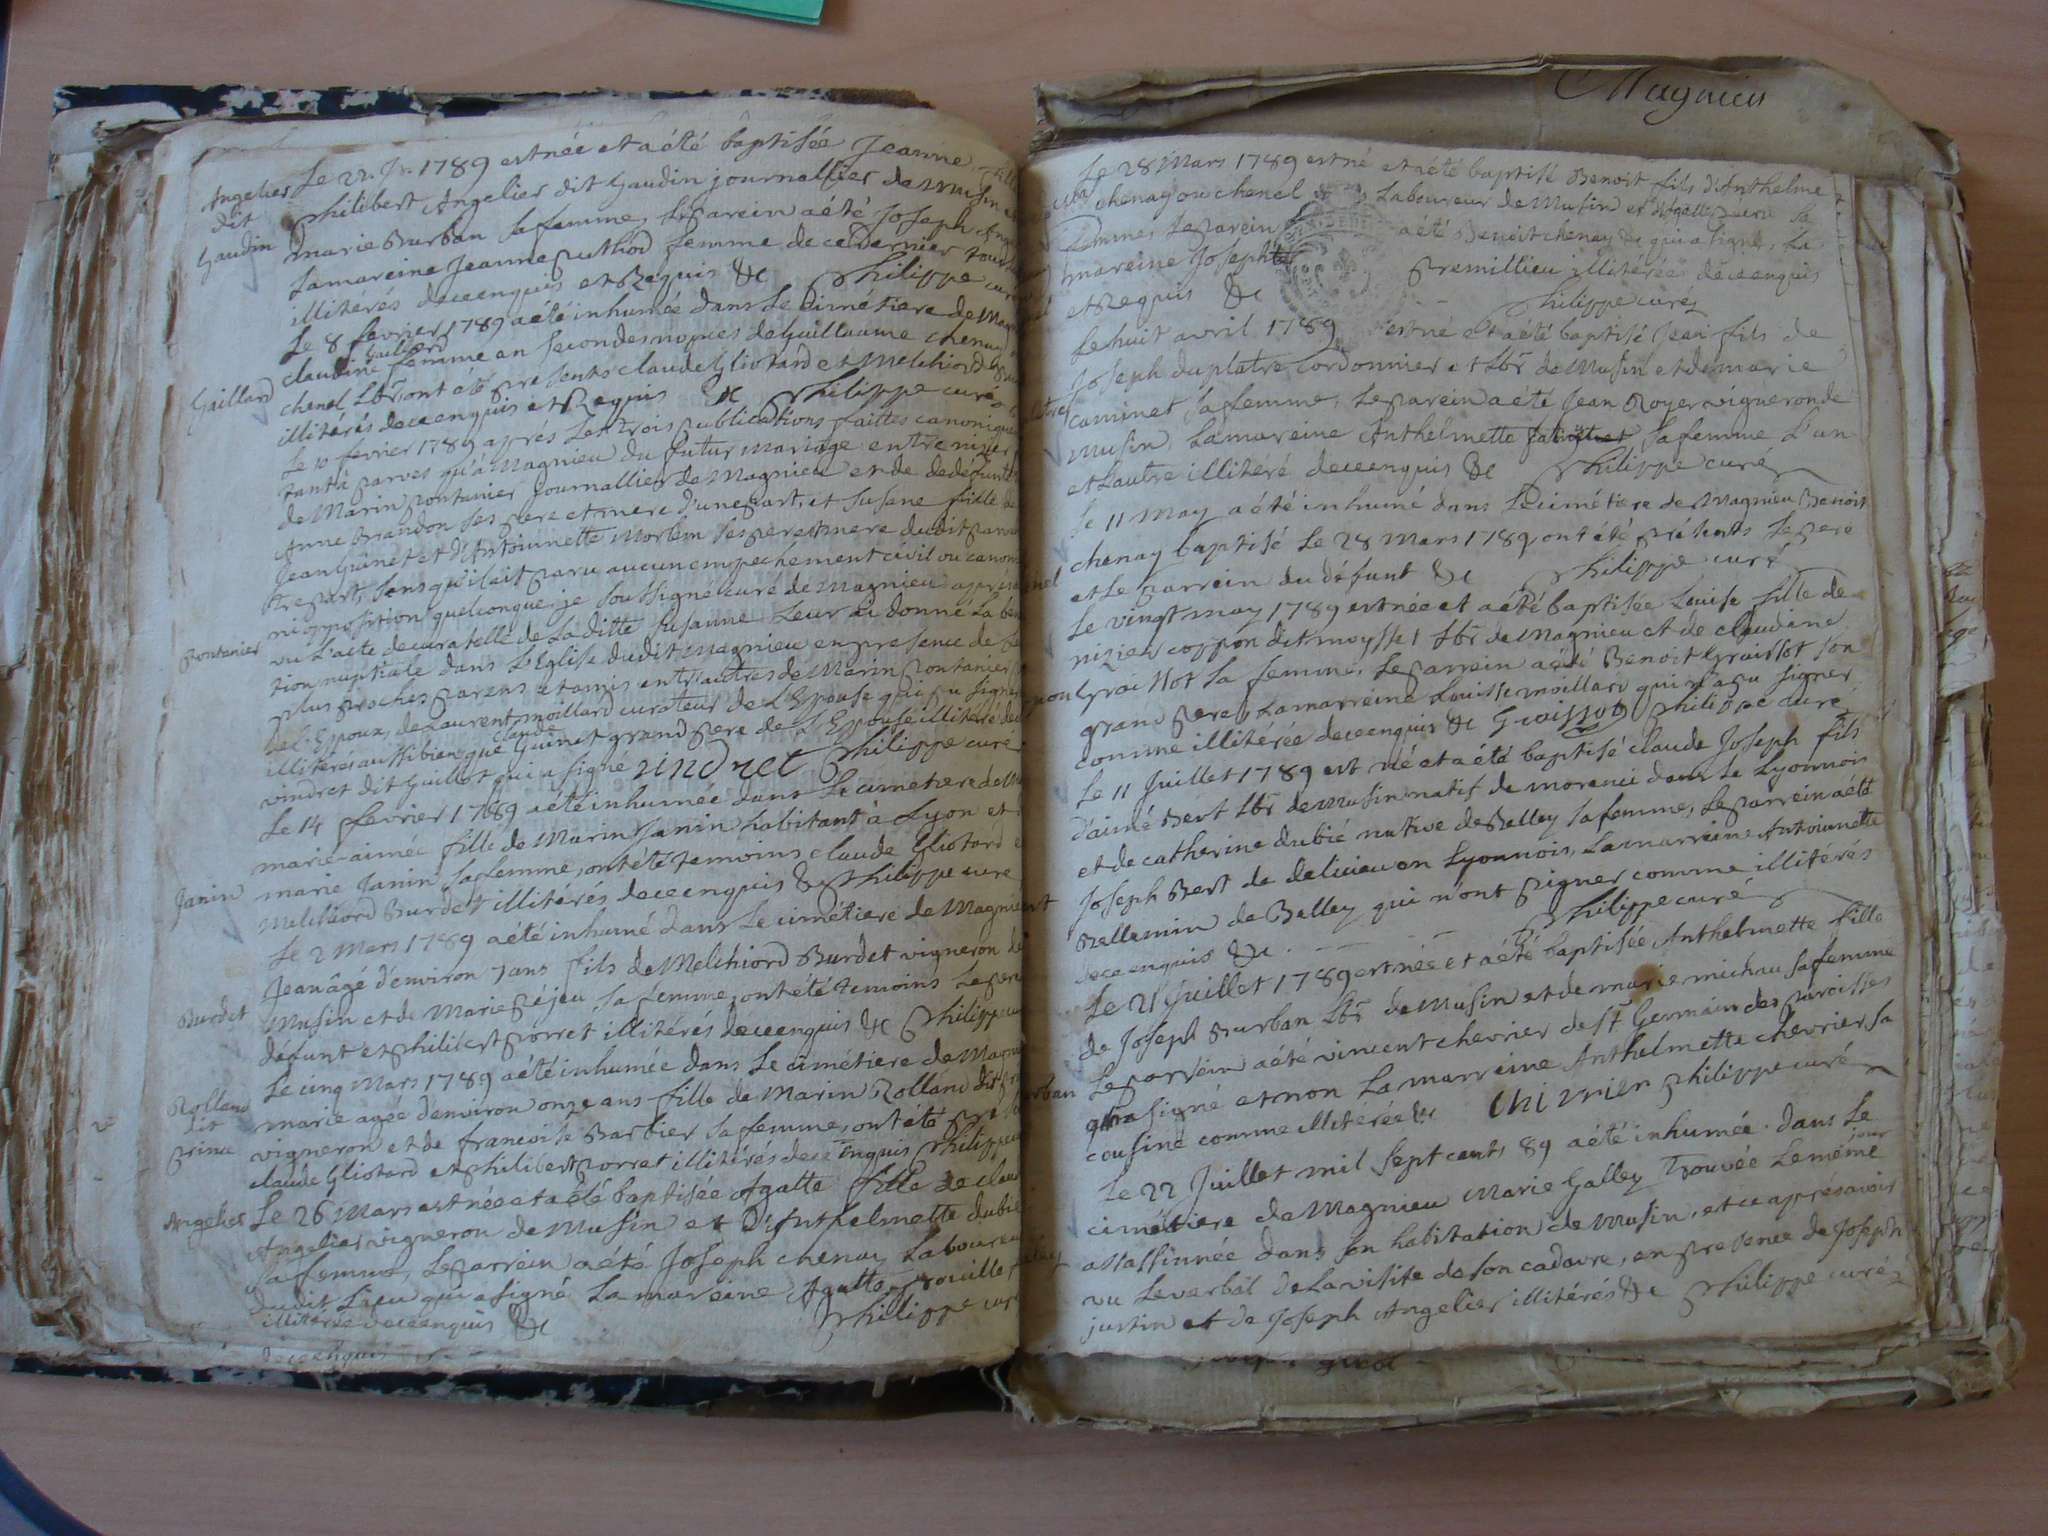 Angelier
dit
Gaudin
Le 22. Jr. 1789 est née et a été baptisée Jeanne fille
Philibert Angelier dit Gaudin journallier de Musin et
marie Burban sa femme, Le parein a été Joseph Ange
La mareine Jeanne puthod femme de ce dernier tous
illiterés de ce enquis et Requis &c Philippe curé
Gaillard
Le 8 fevrier 1789 a été inhumée dans Le cimetiere de Mag
Gaillard
claudine femme en secondes nopces de Guillaume chenay
chenel Lbr ont été présents claude Gliotard et Melchiord Bur
illitérés de ce enquis et Requis &c Philippe curé
Pontanier
Le 10 fevrier 1789 aprés Les trois publications faittes canonique
tant à parves qu'à Magnieu du futur mariage entre nizier
de Marin pontanier journallier de Magnieu et de dedéfunte
Anne Brandon ses pere et mere d'une part, et Susane fille de
Jean Guinet et d'Antoinette Morlein ses père et mere dudit
tre part, sans qu'il ait paru aucun empechement civil ou canon
ni opposition quelconque, je soussigné curé de Magnieu apprés
vu L'acte de curatelle de La ditte Susanne Leur ai donné La bene
tion nuptiale dans L'Eglise dudit Magnieu en presence de
plus proches parens et amis entr'autres de Marin Pontanier
de l'Eppoux, de Laurent moillard curateur de L'Epouse qui su signer
claude
illiterés aussi bien que Guinet grand pere de L'Eppouse illitéré de
vindret dit Guillot qui a signé vindret Philippe curé
Janin
Le 14 fevrier 1789 a été inhumée dans Le cimetiere de M
marie-aimée fille de Marin Janin habitant à Lyon et
marie Janin sa femme, ont été temoins claude Gliotard et
Melchiord Burdet illitérés de ce enquis &c Philippe curé
Burdet
Le 2 Mars 1789 a été inhumé dans Le cimétiere de Magnieu
Jean âgé d'environ 7 ans fils de Melchiord Burdet vigneron de
Musin et de Marie Péjeu sa femme, ont été temoins Le pere
défunt et philibert porret illitérés de ce enquis &c Philippe cu
Rolland
dit
prince
Le cinq Mars 1789 a été inhumée dans Le cimétiere de Magni
marie agée d'environ onze ans fille de Marin Rolland dit pri
vigneron et de francoise Barbier sa femme, ont été
claude Gliotard et philibert porret illitérés de ce enquis Philippe cu
Angelier
Le 26 Mars est née et a été baptisée Agatte fille de claud
Angelier vigneron de Musin et D'Anthelmette dubié
sa femme, Le parrein a été Joseph chenay Laboureur
dudit Lieu qui a signé La mareine Agatte
illiterée de ce enquis &c Philippe curé
de ce enquis
Magnieu
Le 28 Mars 1789 est né et a été baptisé Benoit fils d'Anthelme
chenay ou chenel Laboureur de Musin et d'Agatte sa
femme, Le parein a été Benoit chenay &c qui a signé, La
mareine Josephte premillieu illitérée de ce enquis
et Requis &c Philippe curé
Le huit avril 1789 est né et a été baptisé Jean fils de
Joseph duplatre cordonnier et Lbr de Musin et de marie
caminet sa femme, Le parein a été Jean Royer vigneron de
Musin, La mareine Anthelmette sa femme L'un
et L'autre illitéré de ce enquis &c Philippe curé
Le 11 May a été inhumé dans Le cimétiere de Magnieu Benoit
chenay baptisé Le 28 Mars 1789 ont été présents Le pere
et Le parrein du défunt &c Philippe curé
Le vingt may 1789 est née et a été baptisée Louise fille de
nizier coppon dit moysse Lbr de Magnieu et de claudine
Graissot sa femme, Le parrein a été Benoit Graissot son
grand pere, La marreine Louisse moillard qui n'a pu signer
comme illitérée de ce enquis &c Graissot Philippe curé
Le 11 Juillet 1789 est né et a été baptisé claude Joseph fils
d'aimé Bert Lbr de Musin natif de morancé dans le Lyonnois
et de catherine dubié native de Belley sa femme, Le parrein a été
Joseph Bert de delicieu en Lyonnois, La marreine Antoinette
Bellemin de Belley qui n'ont signer comme illitérés
de ce enquis &c. Philippe curé
Le 21 Juillet 1789 est née et a été baptisée Anthelmette fille
de Joseph Burban Lbr de Musin et de marie michau sa femme
Le parrein a été vincent chevrier de St Germain des paroisses
qui a signé et non La marreine Anthelmette chevrier sa
cousine comme illiterée &c chivrier Philippe curé
Le 22 Juillet mil sept cents 89 a été inhumée dans Le
cimétiere de Magnieu Marie Galley Trouvée Le même jour
assassinnée dans son habitation de Musin, et ce aprés avoir
vu Le verbal de La visite de son cadavre, en presence de Joseph
justin et de Joseph Angelier illitérés &c Philippe curé